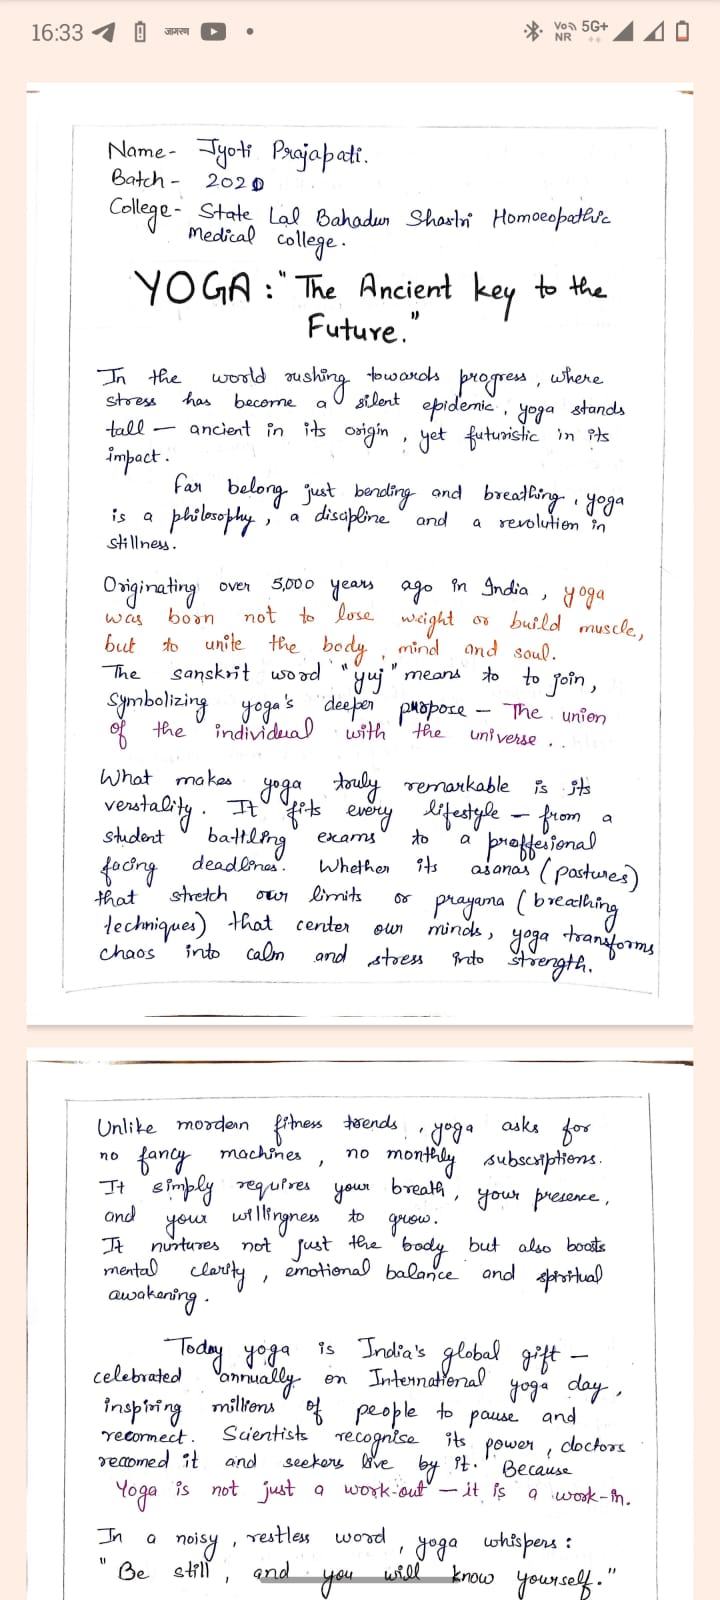 16:33 जागरण Vo 5G+
NR
Name - Jyoti Prajapati.
Batch - 2020
College - State Lal Bahadur Shastri Homoeopathic
Medical college.
YOGA : "The Ancient key to the
Future."
In the world rushing towards progress, where
stress has become a silent epidemic, yoga stands
tall — ancient in its origin, yet futuristic in its
impact.
far belong just bending and breathing, yoga
is a philosophy, a discipline and a revolution in
stillness.
Originating over 5,000 years ago in India, yoga
was born not to lose weight or build muscle,
but to unite the body, mind and soul.
The sanskrit word "yuj" means to to join,
symbolizing yoga's deeper purpose — The union
of the individual with the universe ..
What makes yoga truly remarkable is its
verstality. It fits every lifestyle — from a
student battling exams to a proffesional
facing deadlines. Whether its asanas (postures)
that stretch our limits or prayama (breathing
techniques) that center our minds, yoga transforms
chaos into calm and stress into strength.
Unlike mordern fitness trends, yoga asks for
no fancy machines, no monthly subscriptions.
It simply requires your breath, your presence,
and your willingness to grow.
It nurtures not just the body but also boosts
mental clarity, emotional balance and spiritual
awakening.
Today yoga is India's global gift —
celebrated annually on International yoga day,
inspiring millions of people to pause and
reconnect. Scientists recognise its power, doctors
recomed it and seekers live by it. Because
Yoga is not just a work-out — it is a work-in.
In a noisy, restless word, yoga whispers :
"Be still, and you will know yourself."